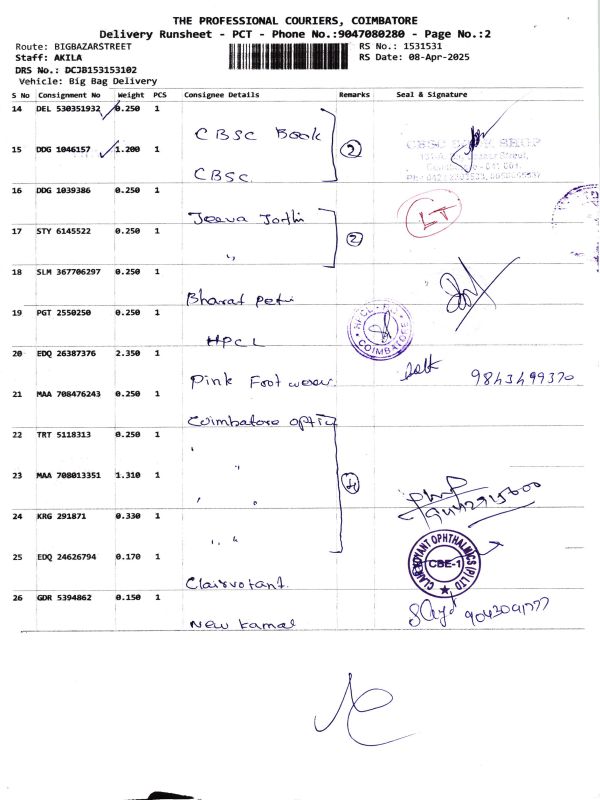 THE PROFESSIONAL COURIERS, COIMBATORE
Delivery Runsheet - PCT - Phone No.:9047080280 - Page No.:2
Route: BIGBAZARSTREET
RS No.: 1531531
Staff: AKILA
RS Date: 08-Apr-2025
DRS No.: DCJB153153102
Vehicle: Big Bag Delivery
S No Consignment No Weight PCS Consignee Details Remarks Seal & Signature
14 DEL 530351932 0.250 1
CBSC Book
15 DDG 1046157 1.200 1
CBSC BOOK SHOP
CBSC.
16 DDG 1039386 0.250 1
Jeeva Jothi
LT
17 STY 6145522 0.250 1
"
2
18 SLM 367706297 0.250 1
Bharat Petr
19 PGT 2550250 0.250 1
HPCL
COIMBATORE
20 EDQ 26387376 2.350 1
Pink Foot wear.
9843499370
21 MAA 708476243 0.250 1
Coimbatore optic
22 TRT 5118313 0.250 1
"
23 MAA 708013351 1.310 1
" "
4
24 KRG 291871 0.330 1
" "
25 EDQ 24626794 0.170 1
Clairvotant.
CLAIRVOYANT OPHTHALMICS (P) LTD
CBE-1
26 GDR 5394862 0.150 1
New Kamal